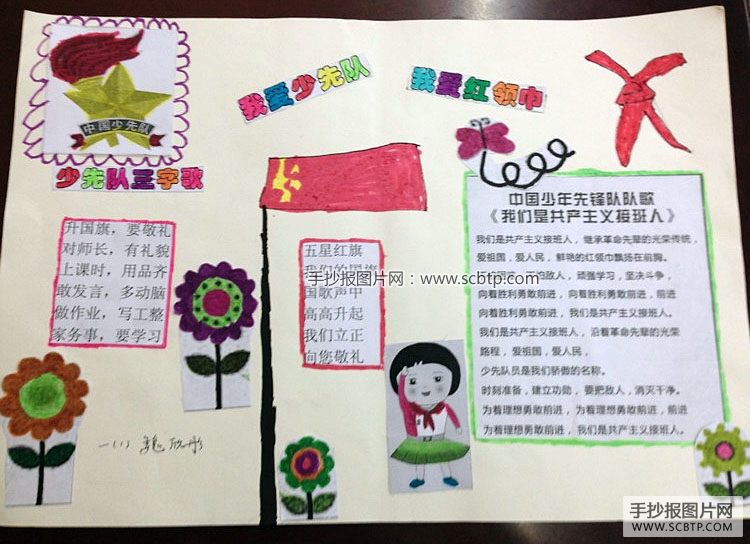 我爱少先队
我爱红领巾
中国少先队
少先队三字歌
升国旗，要敬礼
对师长，有礼貌
上课时，用品齐
敢发言，多动脑
做作业，写工整
家务事，要学习
五星红旗
我们的国旗
国歌声中
高高升起
我们立正
向您敬礼
中国少年先锋队队歌
《我们是共产主义接班人》
我们是共产主义接班人，继承革命先辈的光荣传统，
爱祖国，爱人民，鲜艳的红领巾飘扬在前胸。
顽强学习，坚决斗争，
向着胜利勇敢前进，向着胜利勇敢前进，前进
向着胜利勇敢前进，我们是共产主义接班人。
我们是共产主义接班人，沿着革命先辈的光荣
路程，爱祖国，爱人民，
少先队员是我们骄傲的名称。
时刻准备，建立功勋，要把敌人，消灭干净。
为着理想勇敢前进，为着理想勇敢前进，前进
为着理想勇敢前进，我们是共产主义接班人。
手抄报图片网：www.scbtp.com
一（1）魏欣彤
手抄报图片网
WWW.SCBTP.COM